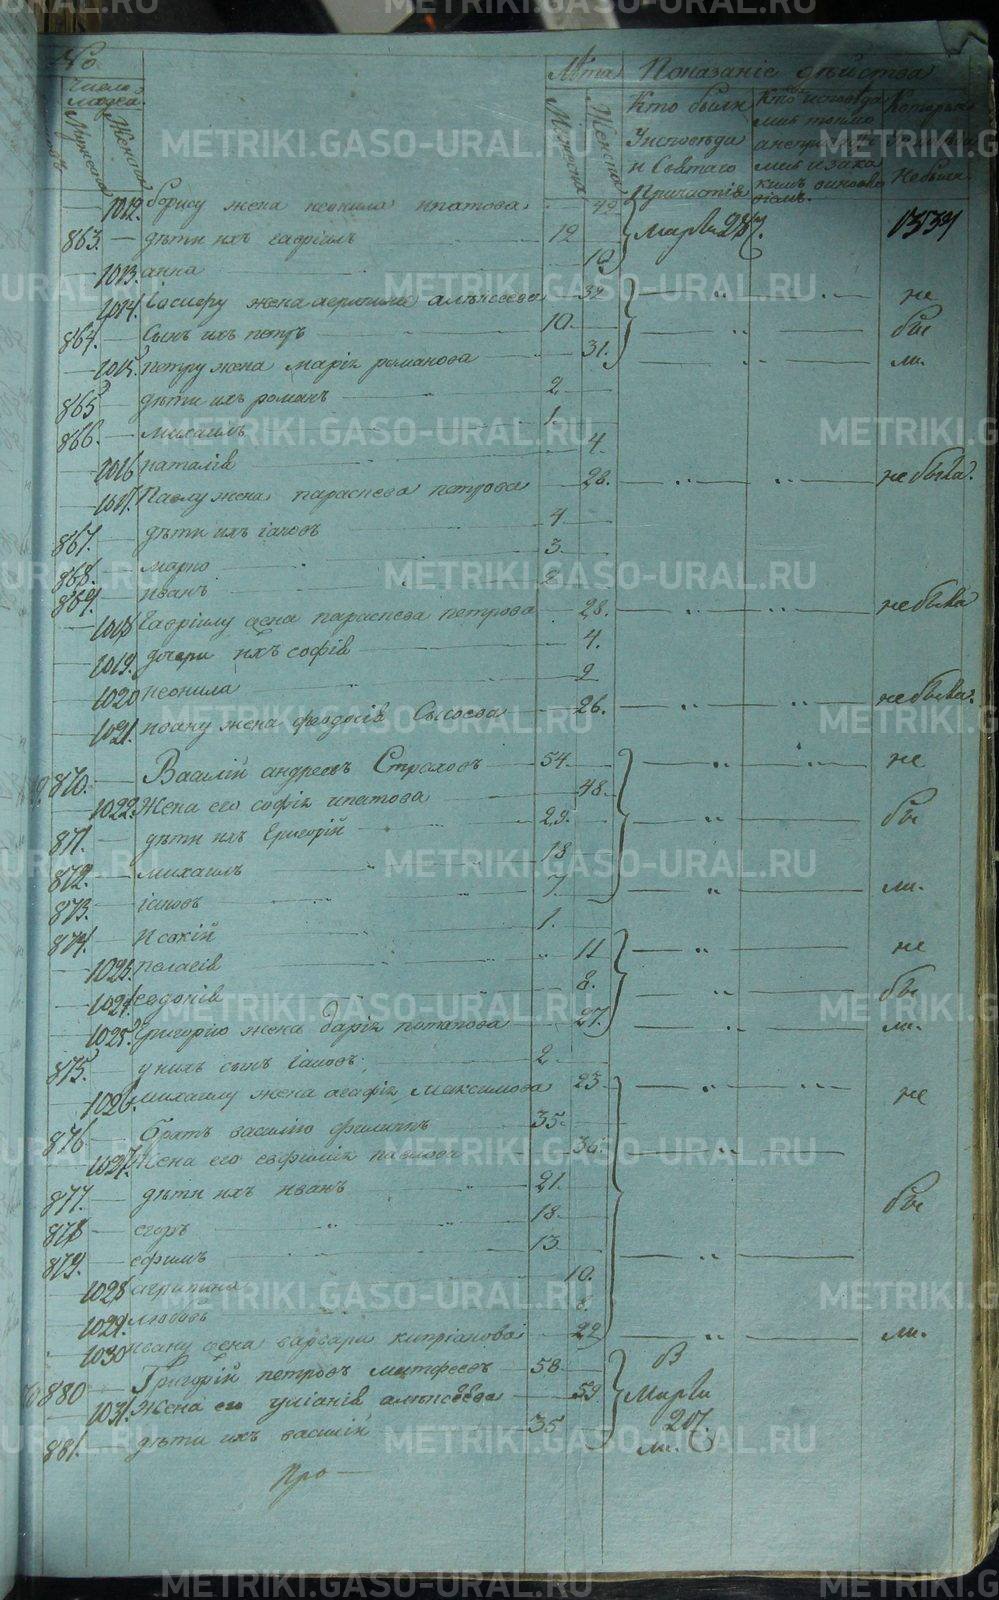 №
Число людей.
Мужеска
Женска
Лѣта
Мужеска
Женска
Показаніе дѣйства
Кто были у исповѣди и Святаго Причастія
Которые не были
1012. борису жена неонила ипатова 49
863. дѣти ихъ гавріилъ 12 Марта 28 1353
1013. анна
1014. жена агрипина алексѣева 32 не
864. Сынъ ихъ петръ 10. бы
1015. петру жена марія романова 31. ли.
865 дѣти ихъ романъ 2
866. михаилъ 1.
1016 наталія 4.
1017. Павлу жена параскева петрова 28. не была.
867. дѣти ихъ іаковъ 4
868. марко 3
869. иванъ 2
1018 Гавріилу жена параскева петрова 28. не была
1019. дочери ихъ софія 4.
1020 неонила 2
1021. иоану жена феодосія Сысоева 26. не была.
870. Василій андреевъ Страховъ 54. не
1022. Жена его софія ипатова 48.
871. дѣти ихъ Григорій 29. бы
872. михаилъ 18
873. іаковъ 7. ли.
874. 1.
1023. пелагія 11 не
1024. евдокія 8. бы
1025. Григорію жена дарія потапова 27. ли.
875. у нихъ сынъ іаковъ. 2
1026. михаилу жена агафія Максимова 23. не
876 братъ василію филипъ 35.
1027. Жена его евфимія павлова 36.
877. дѣти ихъ иванъ 21. бы
878 егоръ 18
879. ефимъ 13
1028 агрипина 10.
1029. любовь
1030 ивану жена варвара кипріанова 22 ли.
880 Григорій петровъ матфеевъ 58 В
1031. Жена его уліанія алексѣева 59 Марта
881. дѣти ихъ василій 35 20
Про
METRIKI.GASO-URAL.RU